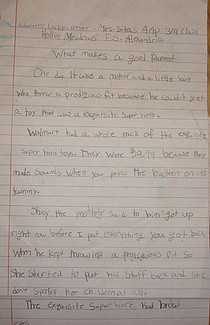 Mrs. Sitas AAP 3/4 Class
Hollin Meadows E.S. Alexandria
What makes a good Parent
One day It was a mother and a little boy
who threw a prodigious fit because he couldn't get
a toy that was a exquisite Super hero.
Walmart had a whole rack of the exquisite
super hero toys. They were $19.99 because they
made sounds when you press the button on its
tummy.
Stop the mother said to him "get up
right now before I put everything you got back
When he kept throwing a prodigious fit so
She started to put his stuff back and she
don't spoiler her children at all.
The exquisite Super hero had brow